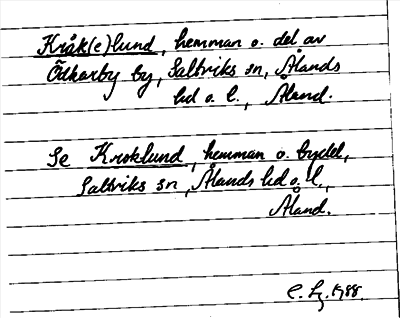 Kråk(e)lund, hemman o. del av
Ödkarby by, Saltviks sn, Ålands
hd o. l., Åland.
Se Kroklund, hemman o. bydel,
Saltviks sn, Ålands hd o. l.,
Åland.
1988.